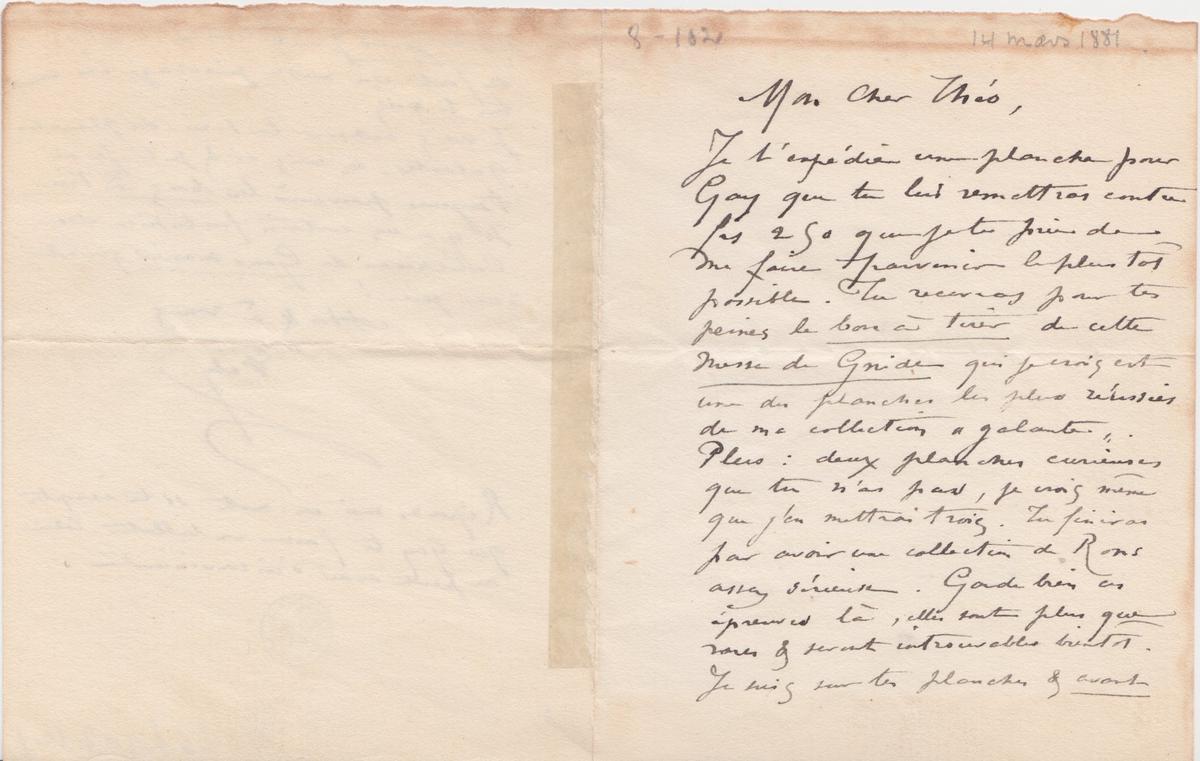 8 - 102
14 mars 1881
Mon Cher Théo,
Je t'expédie une planche pour
Gay que tu lui remettras contre
les 250 que je te prie de
me faire parvenir le plus tôt
possible. Tu recevras pour tes
peines le bon à tirer de cette
Messe de Gnide qui je crois est
une des planches les plus réussies
de ma collection « galante ».
Plus : deux planches curieuses
que tu n'as pas, je crois même
que j'en mettrai trois. Tu finiras
par avoir une collection de Rops
assez sérieuse. Garde bien ces
épreuves là, elles sont plus que
rares & seront introuvables bientôt.
Je suis sur tes planches & avant